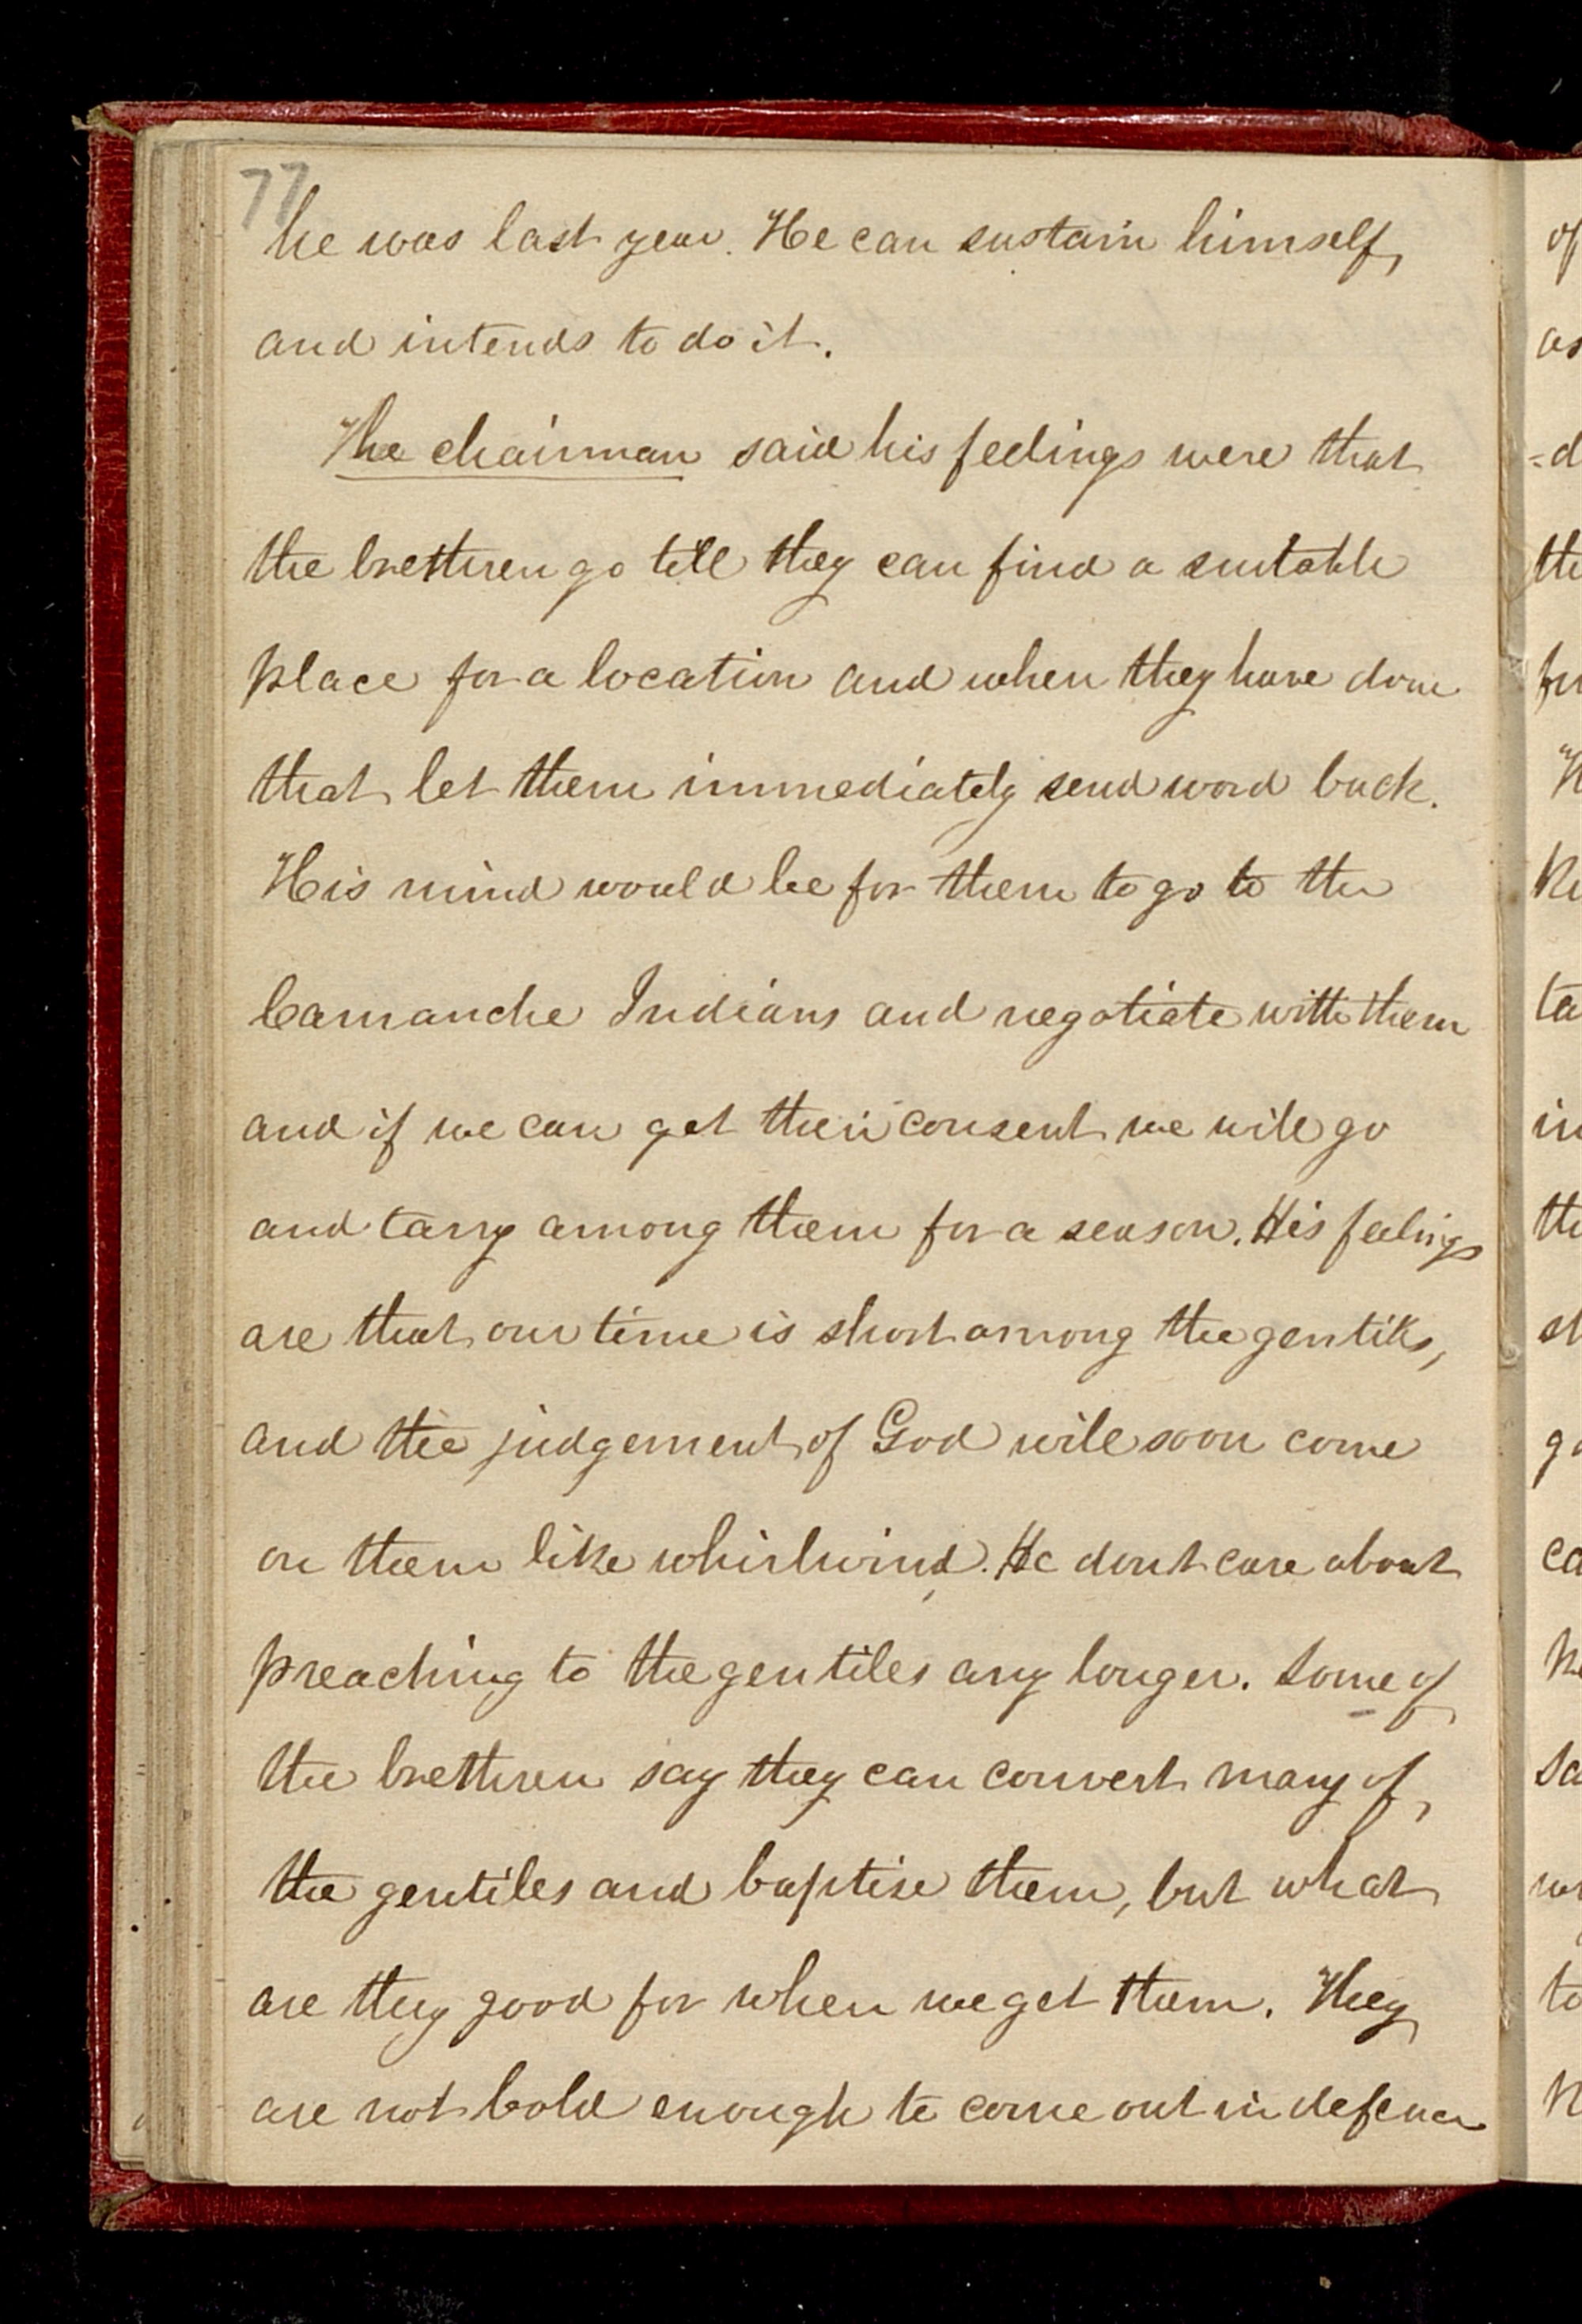 77
he was last year. He can sustain himself,
and intends to do it.
The chairman said his feelings were that
the brethren go till they can find a suitable
place for a location and when they have done
that let them immediately send word back.
His mind would be for them to go to the
Camanche Indians and negotiate with them
and if we can get their consent we will go
and tarry among them for a season. His feelings
are that our time is short among the gentiles,
and the judgement of God will soon come
on them like whirlwind. He dont care about
preaching to the gentiles any longer. Some of
the brethren say they can convert many of
the gentiles and baptise them, but what
are they good for when we get them. They
are not bold enough to come out in defence